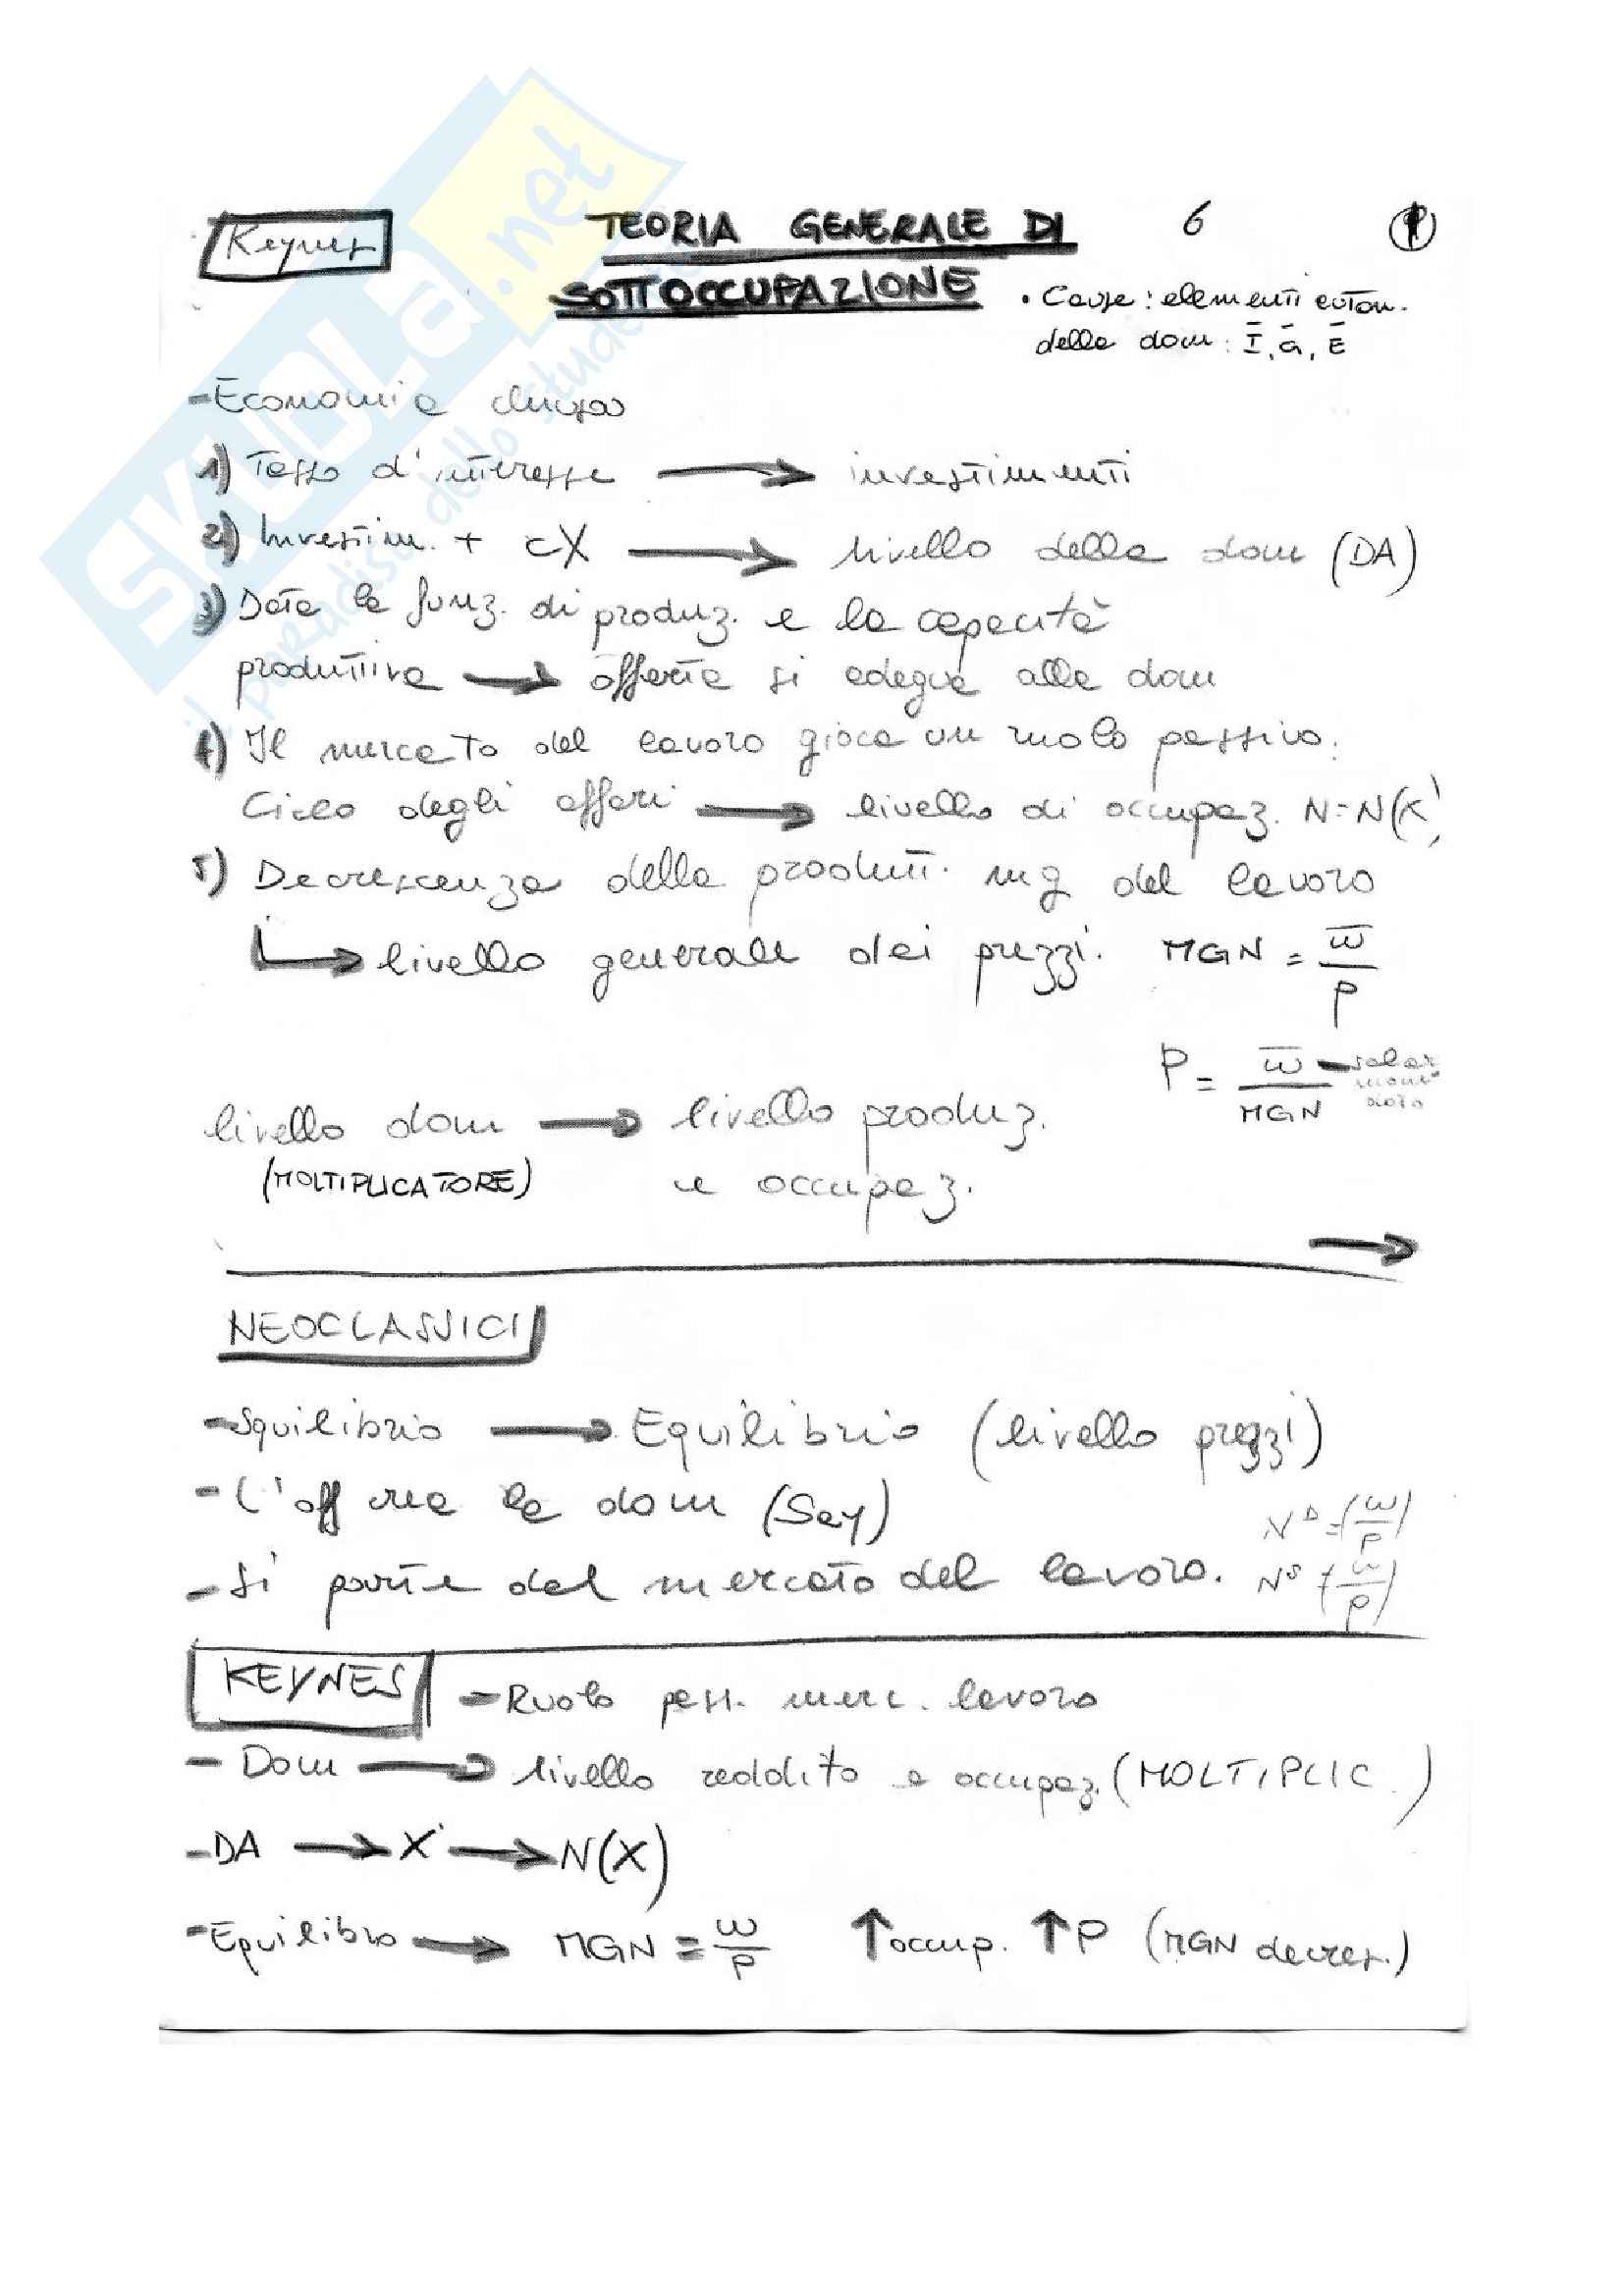 Keynes
TEORIA GENERALE DI
6
SOTTOCCUPAZIONE
• Cause: elementi auton.
della dom: Ī, Ḡ, Ē
- Economia chiusa
1) Tasso d'interesse → investimenti
2) Investim. + cX → livello della dom (DA)
3) Data la funz. di produz. e la capacità
produttiva → offerta si adegua alla dom
4) Il mercato del lavoro gioca un ruolo passivo.
Ciclo degli affari → livello di occupaz. N=N(X)
5) Decrescenza della produtt. mg del lavoro
↳ livello generale dei prezzi. MGN = w̄/P
P = w̄/MGN - salar
livello dom → livello produz.
(MOLTIPLICATORE) e occupaz.
→
NEOCLASSICI
- Squilibrio → Equilibrio (livello prezzi)
- L'off crea la dom (Say)
N^D = (w/P)
- Si parte dal mercato del lavoro. N^S (w/P)
KEYNES - Ruolo pass. merc. lavoro
- Dom → livello reddito e occupaz. (MOLTIPLIC.)
- DA → X → N(X)
- Equilibrio → MGN = w/P ↑occup. ↑P (MGN decres.)
SKUOLA.net
il paradiso dello studente